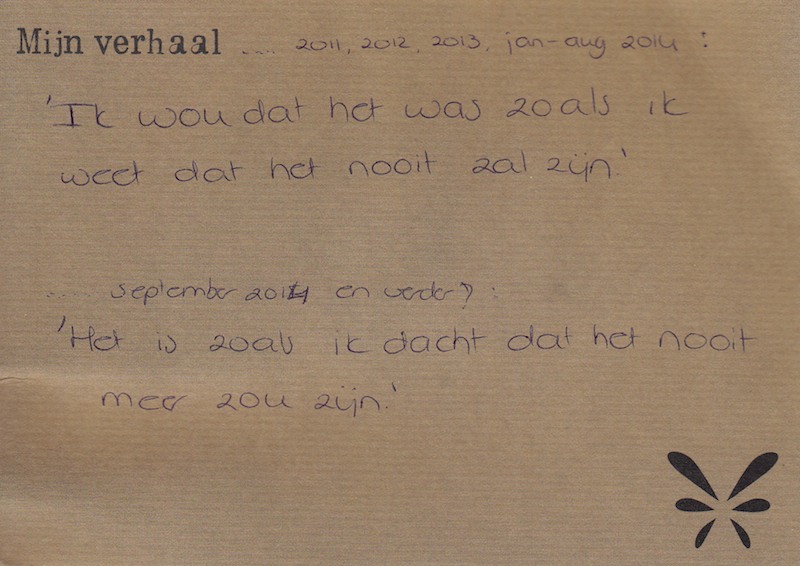 Mijn verhaal .... 2011, 2012, 2013, jan-aug 2014 :
'Ik wou dat het was zoals ik
weet dat het nooit zal zijn.'
..... september 2014 en verder? :
'Het is zoals ik dacht dat het nooit
meer zou zijn.'